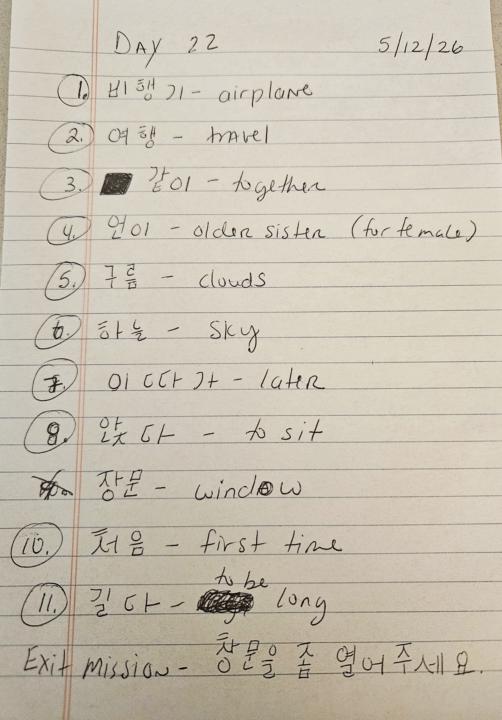 DAY 22 5/12/26
1. 비행기 - airplane
2. 여행 - travel
3. 같이 - together
4. 언이 - older sister (for female)
5. 구름 - clouds
6. 하늘 - sky
7. 이따가 - later
8. 앉다 - to sit
장문 - window
10. 처음 - first time
11. 길다 - to be long
Exit mission - 창문을 좀 열어주세요.